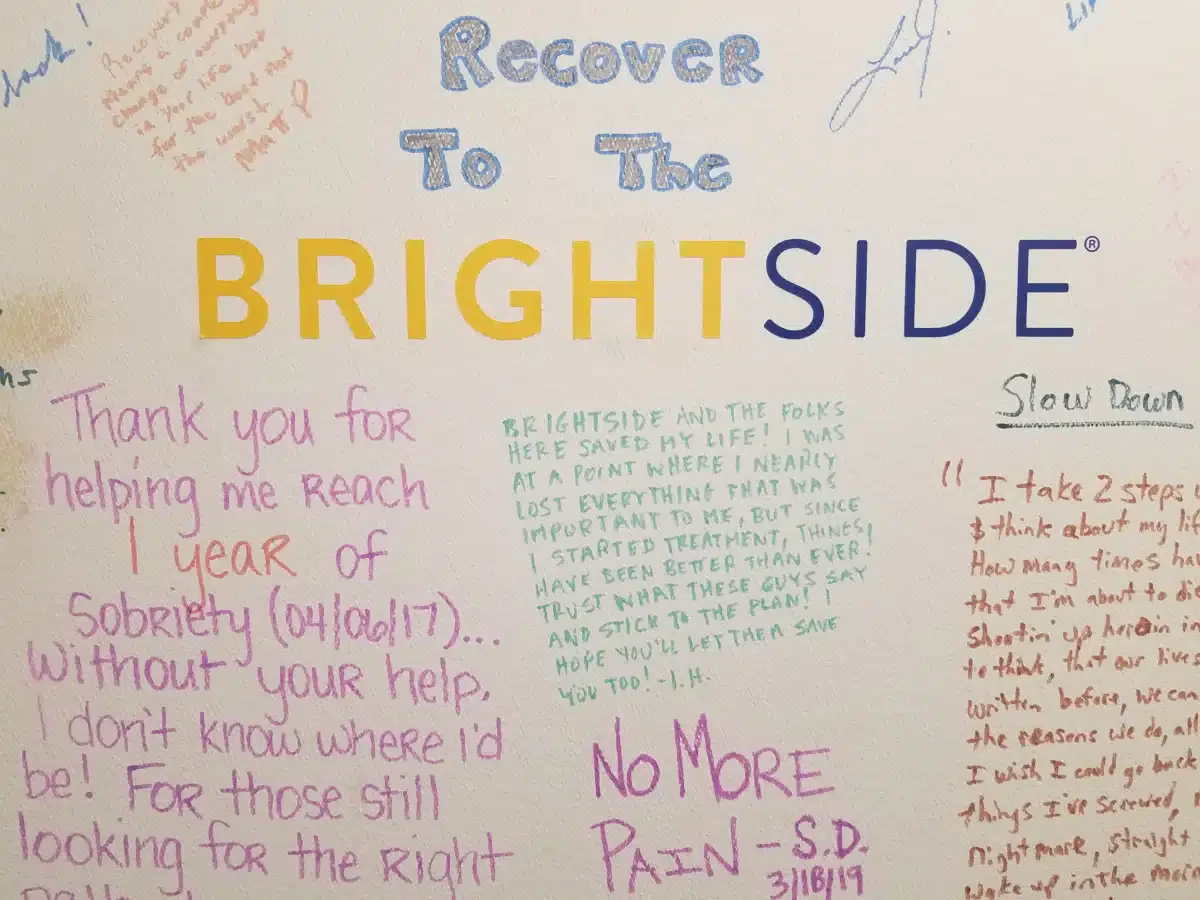 back!
Recovery
means a complete
change of everything
in your life but
for the best not
the worst
Matt P
Recover
To The
BRIGHTSIDE®
Thank you for
helping me Reach
1 year of
Sobriety (04/06/17)...
Without your help,
I don't know where i'd
be! For those still
looking for the Right
BRIGHTSIDE AND THE FOLKS
HERE SAVED MY LIFE! I WAS
AT A POINT WHERE I NEARLY
LOST EVERYTHING THAT WAS
IMPORTANT TO ME, BUT SINCE
I STARTED TREATMENT, THINGS
HAVE BEEN BETTER THAN EVER!
TRUST WHAT THESE GUYS SAY
AND STICK TO THE PLAN! I
HOPE YOU'LL LET THEM SAVE
YOU TOO! -J.H.
NO MORE
PAIN - S.D.
3/18/19
Slow Down
"I take 2 steps
$ think about my
How many times
that I'm about to die
Shootin' up heroin in
to think, that our lives
written before, we can
the reasons we do, all
I wish I could go back
things I've screwed,
nightmare, straight
wake up in the